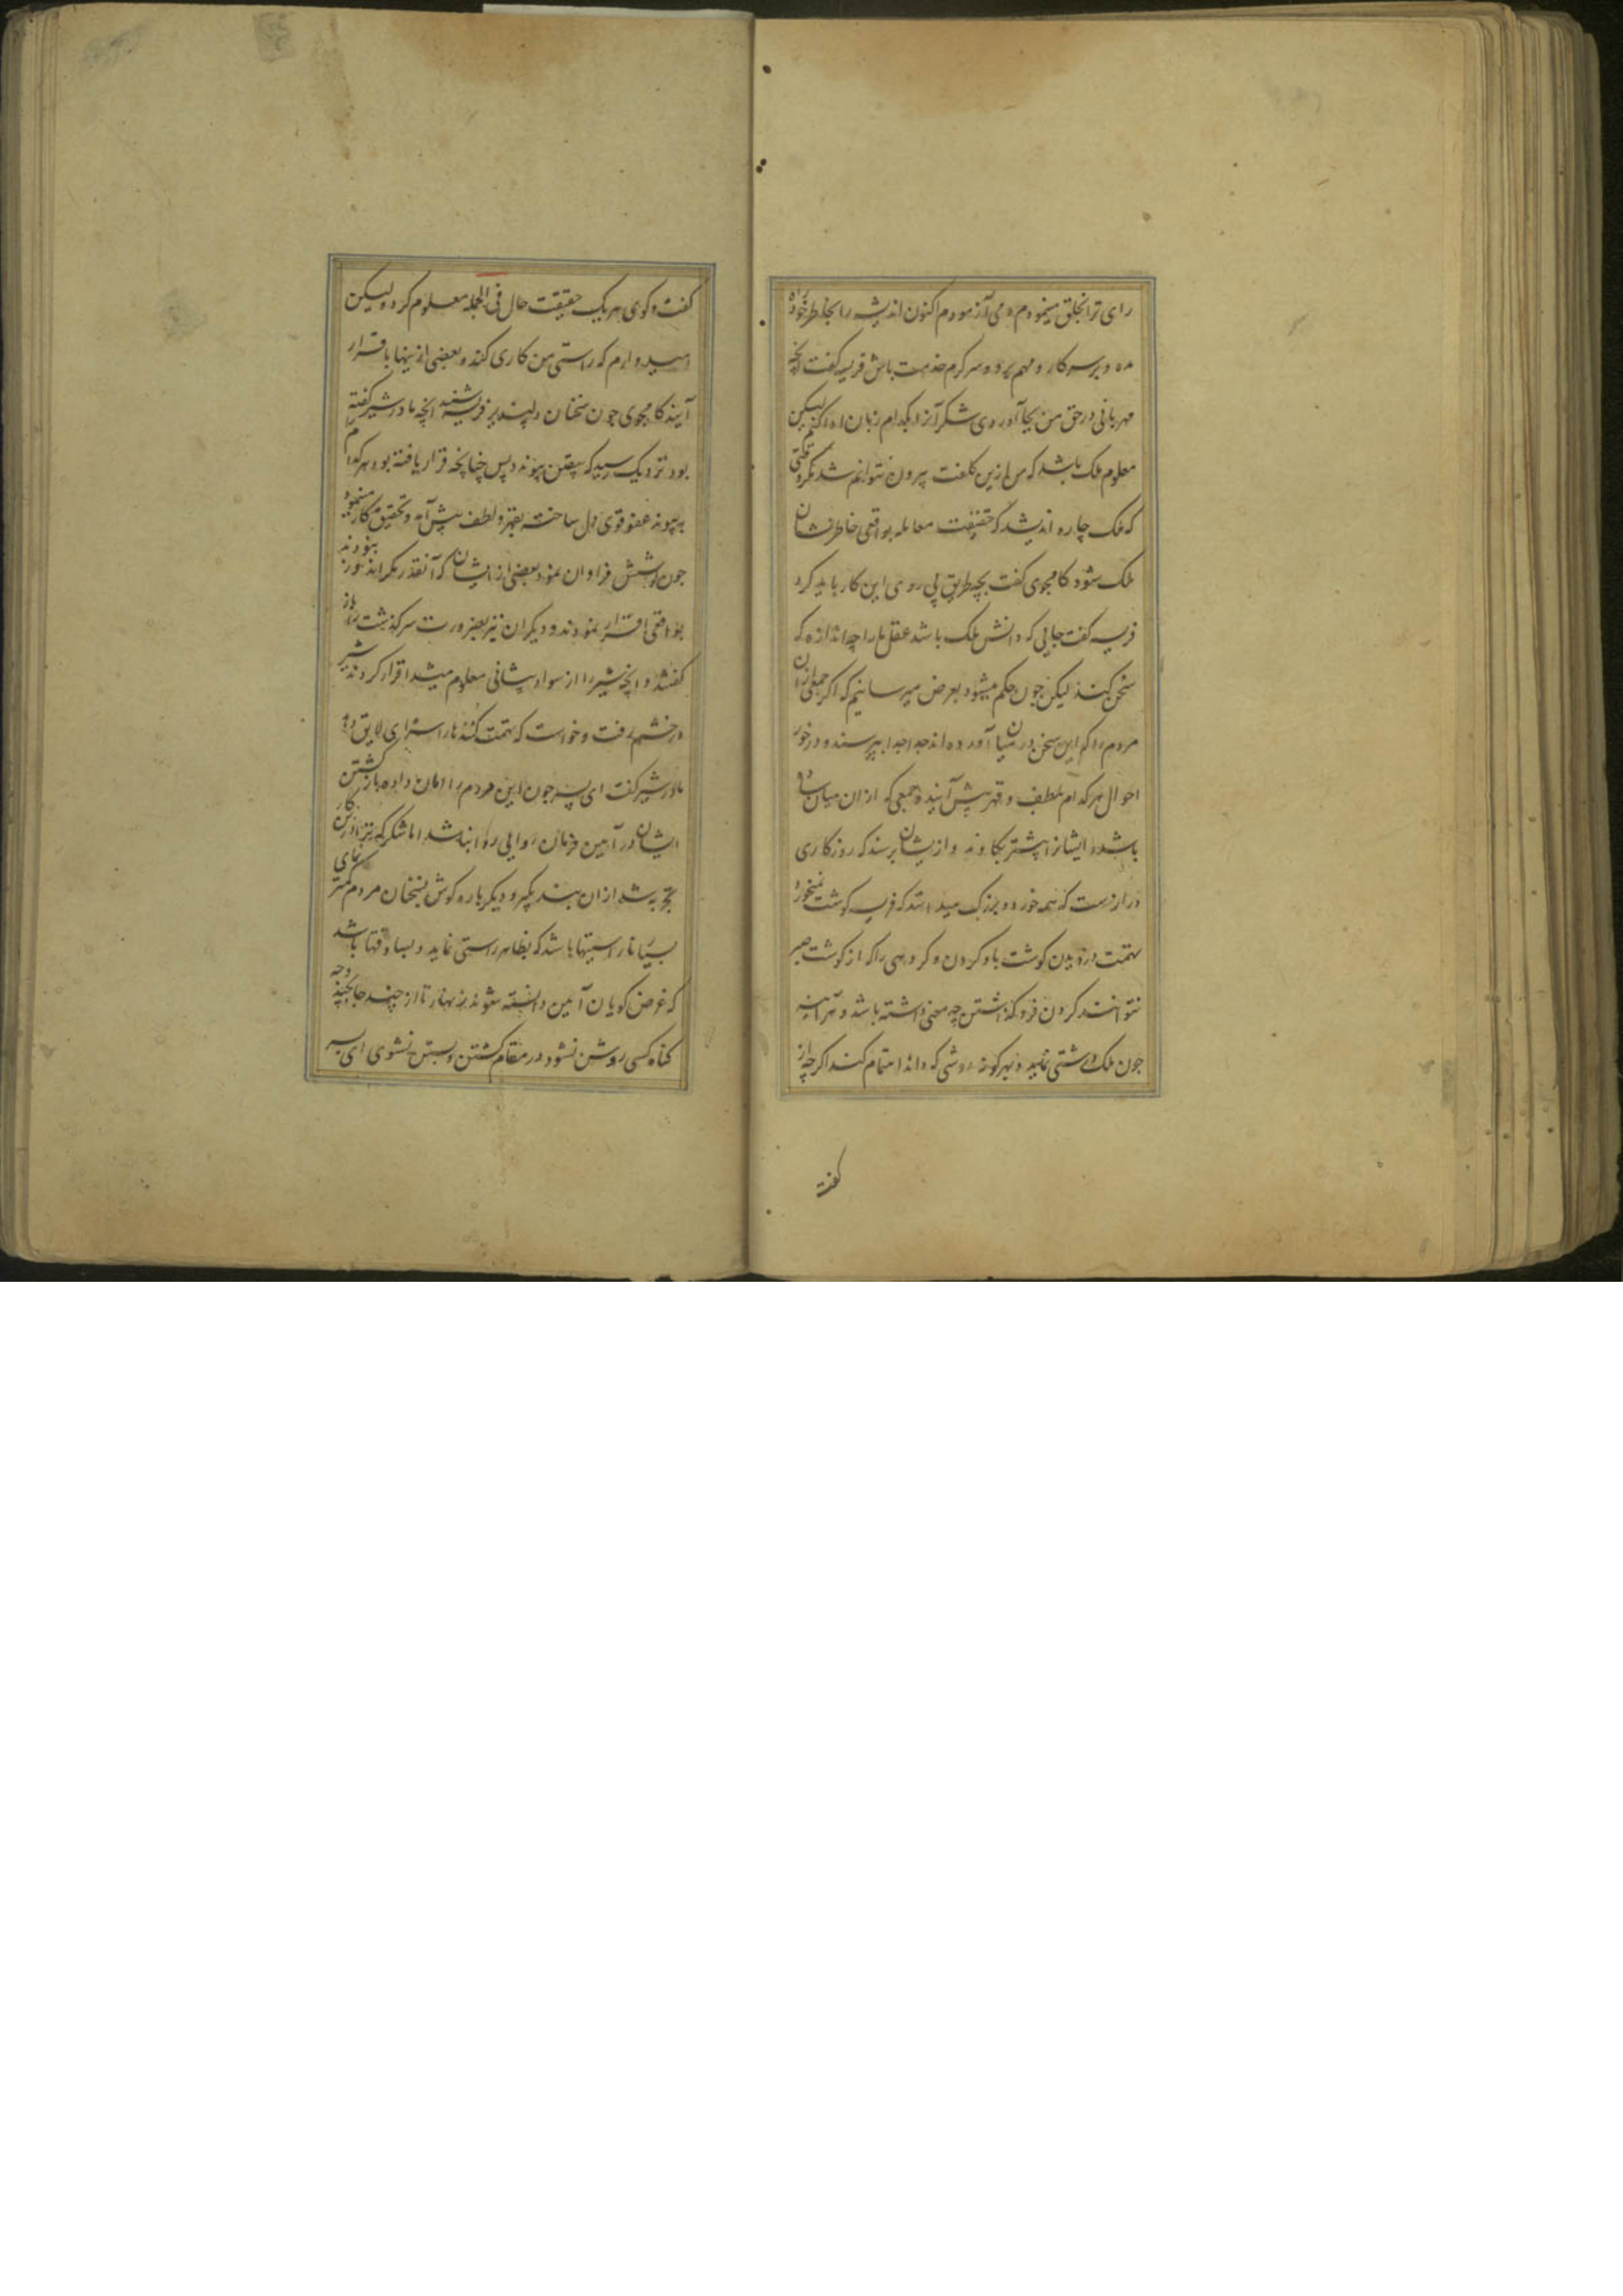 رای ترا بخلق مینمودم و می آزمودم اکنون اندیشه را بخاطر خود راه
مده و بر سر کار و مهم برو و سرکرم خدمت باش فریسه کفت انچه
مهربانی در حق من بجا آوردی شکر آنرا بکدام زبان ادا کنم لیکن
معلوم ملک باشد که من ازین کلفت بیرون نتوانم شد مکر وقتی
که ملک چاره اندیشد که حقیقت معامله بواقعی خاطر نشان
ملک شود کامجوی کفت بچه طریق پی روی این کار باید کرد
فریسه کفت جایی که دانش ملک باشد عقل ما را چه اندازه که
سخن کند لیکن چون حکم میشود بعرض میرسانیم که اکر جمعی از آن
مردم را که این سخن در میان آورده اند جدا جدا بپرسند و در خور
احوال هر کدام بلطف و قهر پیش آیند و جمعی که از ان میان ساده
باشند ایشانرا پیشتر بکاوند و ازیشان پرسند که روزکاری
دراز است که همه خورد و بزرک میدانند که فریسه کوشت نمیخورد
تهمت دزدیدن کوشت باو کردن و کروهی را که از کوشت صبر
نتوانند کردن فرو کذاشتن چه معنی داشته باشد و هرآینه
چون ملک درشتی نماید و بهر کونه روشی که داند اهتمام کند اکر چه از
کفت
کفت و کوی هر یک حقیقت حال فی الجمله معلوم کردد ولیکن
امیدوارم که راستی من کاری کند و بعضی ازینها باقرار
آیند کامجوی چون سخنان دلپذیر فریسه شنید انچه مادر شیر کفته
بود نزدیک رسید که بیقین پیوندد پس چنانچه قرار یافته بود هر کدام
بپیوند عفو قوی دل ساخته بقهر و لطف پیش آمد و تحقیق کار مینمود
چون کوشش فراوان نمود بعضی از ایشان که آنقدر مکر اندوز نبودند
بواقعی اقرار نمودند و دیکران نیز بضرورت سرکذشت باز
کفتند و انچه شیر را از سواد پیشانی معلوم میشد اقرار کردند شیر
در خشم رفت و خواست که تهمت کنندها را سزای لایق دهد
مادر شیر کفت ای پسر چون این مردم را امان داده باز کشتن
ایشان در آیین فرمان روایی روا نباشد اما شکر که ترا درین کار
تجربه شد از ان پند بکیر و دیکر باره کوش بسخنان مردم کمتر نمای
بسیار ناراستیها باشد که بظاهر راستی نماید و بسا وقتها باشد
که غرض کویان آمین دانسته شوند زنهار تا از چند جا بچند وجه
کناه کسی روشن نشود در مقام کشتن و بستن نشوی ای پسر